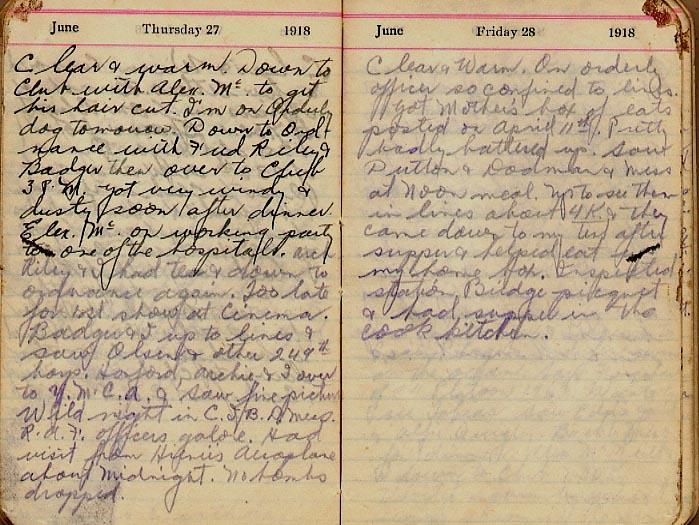 June Thursday 27 1918
Clear & warm. Down to
Club with Alex. Mc. to get
his hair cut. I'm on Orderly
dog tomorrow. Down to Ord
nance with Fred Riley &
Badger then over to Club
38 M. got very windy &
dusty soon after dinner.
Elex. Mc. on working party
to one of the hospitals.
Riley & I had tea & down to
ordnance again. Too late
for 1st show at Cinema.
Badger & I up to lines &
saw Olsen & other 249th
boys. archie & I over
to Y.M.C.A. & saw fine picture
Wild night in C.I.B.D. Mess.
R.A.F. officers galore. Had
visit from Huns Aeroplane
about Midnight. No bombs
dropped.
June Friday 28 1918
Clear & Warm. On orderly
officer so confined to lines.
Got Mother's box of eats
posted on April 11th. Pretty
badly battered up. Saw
Dutton & Dodman & Miss
at Noon meal. Up to see them
in lines about 4 & they
came down to my tent after
supper & helped eat
my home box. Inspected
station, Bridge picquet
& had supper in the
cook kitchen.